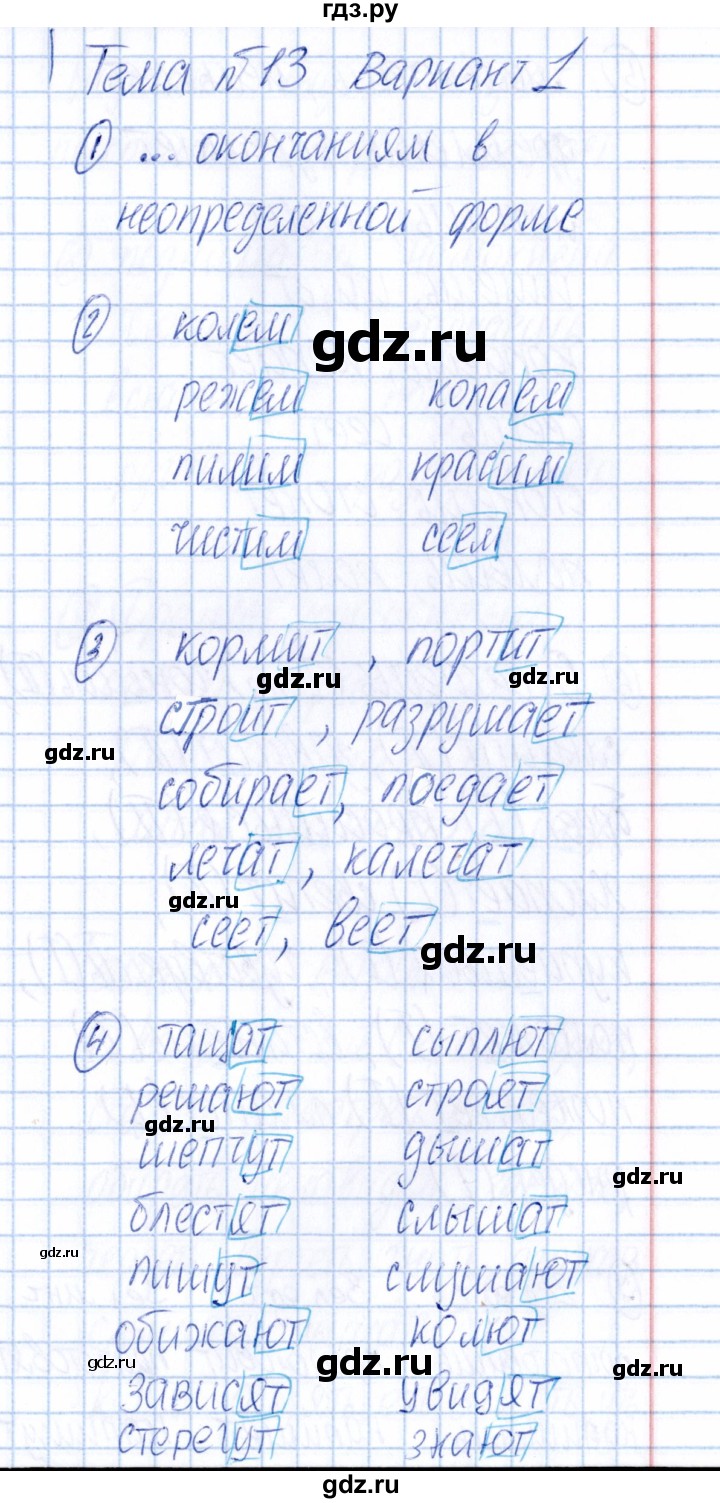 гдз.ру
Тема №13 Вариант 1
① ... окончаниям в
неопределенной форме
② колем
gdz.ru
режем копаем
пилим красим
чистим сеем
③ кормит, портит
gdz.ru gdz.ru
строит, разрушает
gdz.ru
собирает, поедает
лечат, калечат
gdz.ru
сеет, веет
gdz.ru
④ тащат сыплют
решают строят
gdz.ru
шепчут дышат
gdz.ru
блестят слышат
gdz.ru
пишут слушают
обижают колют
gdz.ru gdz.ru gdz.ru
зависят увидят
стерегут знают
gdz.ru